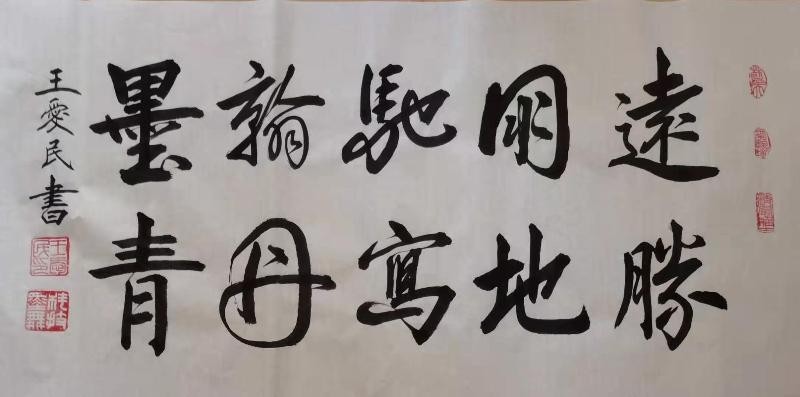 遠馳翰墨
勝地寫丹青
王愛民書